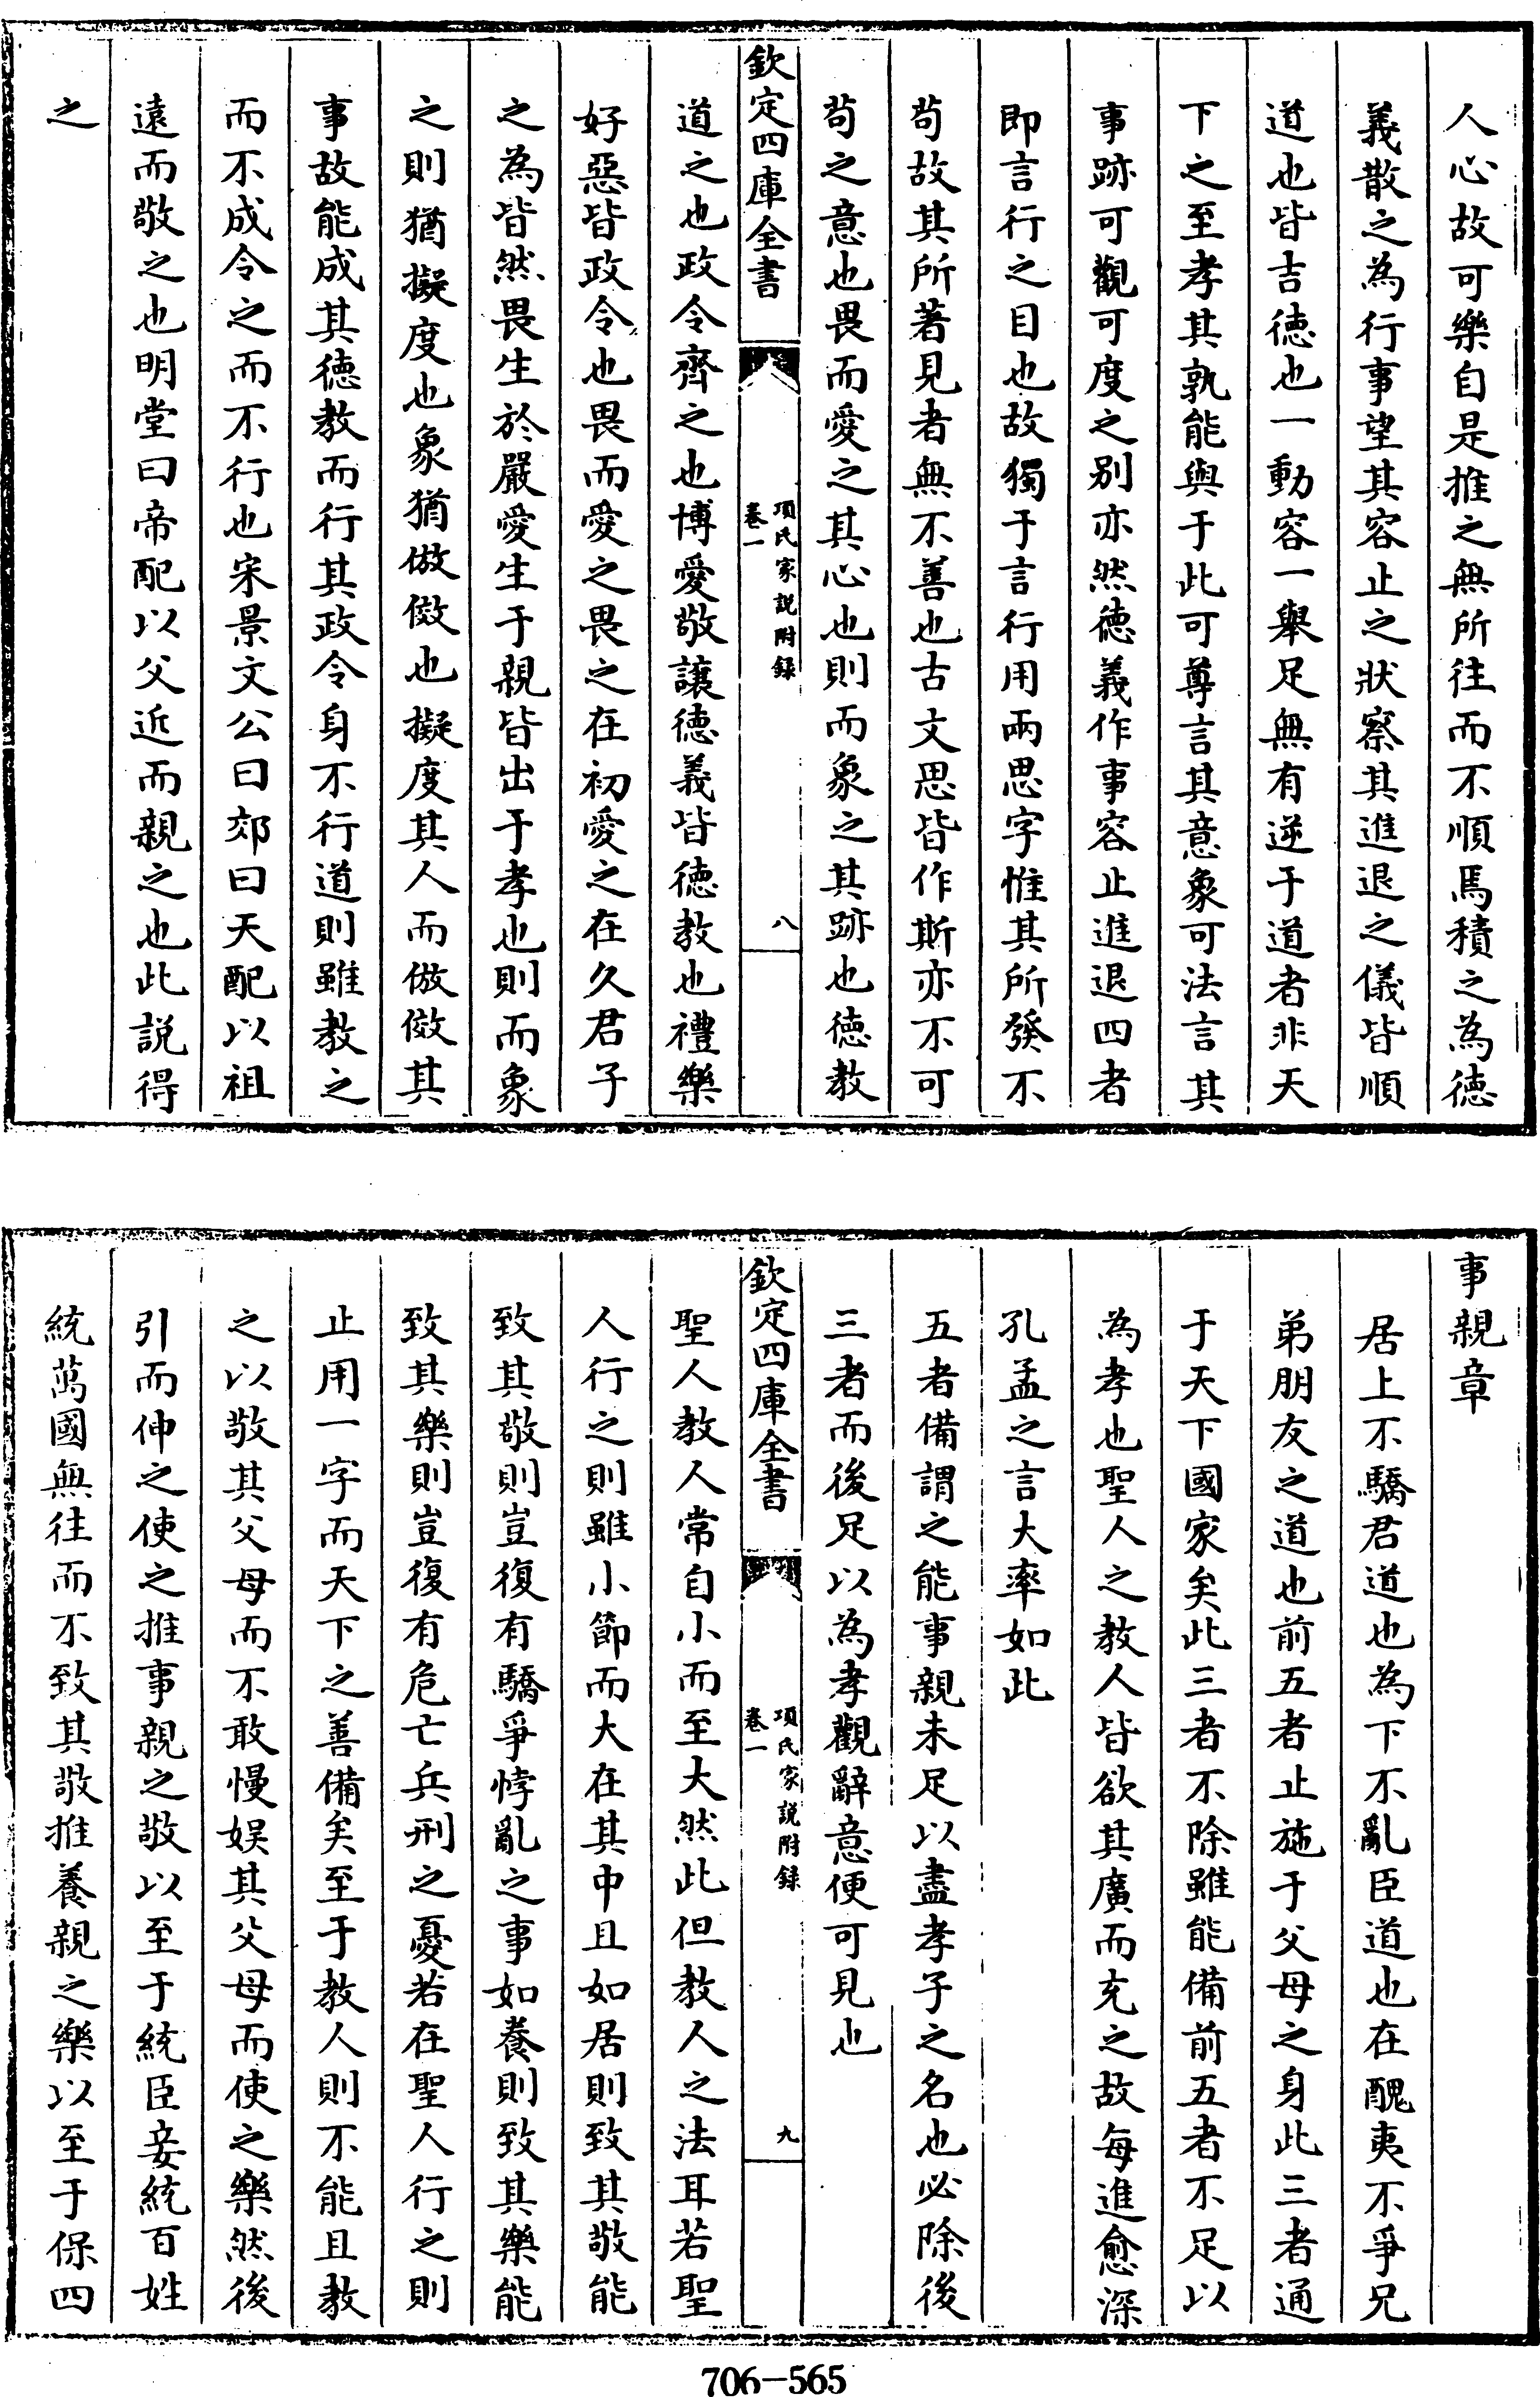 人心故可樂自是推之無所往而不順焉積之為徳
義散之為行事望其容止之狀察其進退之儀皆順
道也皆吉徳也一動容一舉足無有逆于道者非天
下之至孝其孰能與于此可尊言其意象可法言其
事跡可觀可度之别亦然徳義作事容止進退四者
即言行之目也故獨于言行用兩思字惟其所發不
苟故其所著見者無不善也古文思皆作斯亦不可
苟之意也畏而愛之其心也則而象之其跡也徳教
欽定四庫全書
項氏家説附録
卷一
八
道之也政令齊之也博愛敬譲徳義皆徳教也禮樂
好惡皆政令也畏而愛之畏之在初愛之在久君子
之為皆然畏生於嚴愛生于親皆出于孝也則而象
之則猶擬度也象猶倣傚也擬度其人而倣傚其
事故能成其徳教而行其政令身不行道則雖教之
而不成令之而不行也宋景文公曰郊曰天配以祖
遠而敬之也明堂曰帝配以父近而親之也此説得
之
事親章
居上不驕君道也為下不亂臣道也在醜夷不爭兄
弟朋友之道也前五者止施于父母之身此三者通
于天下國家矣此三者不除雖能備前五者不足以
為孝也聖人之教人皆欲其廣而充之故每進愈深
孔孟之言大率如此
五者備謂之能事親未足以盡孝子之名也必除後
三者而後足以為孝觀辭意便可見也
欽定四庫全書
項氏家説附録
卷一
九
聖人教人常自小而至大然此但教人之法耳若聖
人行之則雖小節而大在其中且如居則致其敬能
致其敬則豈復有驕爭悖亂之事如養則致其樂能
致其樂則豈復有危亡兵刑之憂若在聖人行之則
止用一字而天下之善備矣至于教人則不能且教
之以敬其父母而不敢慢娱其父母而使之樂然後
引而伸之使之推事親之敬以至于統臣妾統百姓
統萬國無往而不致其敬推養親之樂以至于保四
706-565